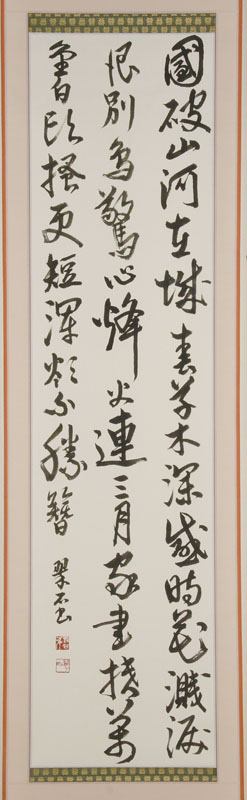 國破山河在城春草木深感時花濺淚
恨別鳥驚心烽火連三月家書抵萬
金白頭搔更短渾欲不勝簪 翠石